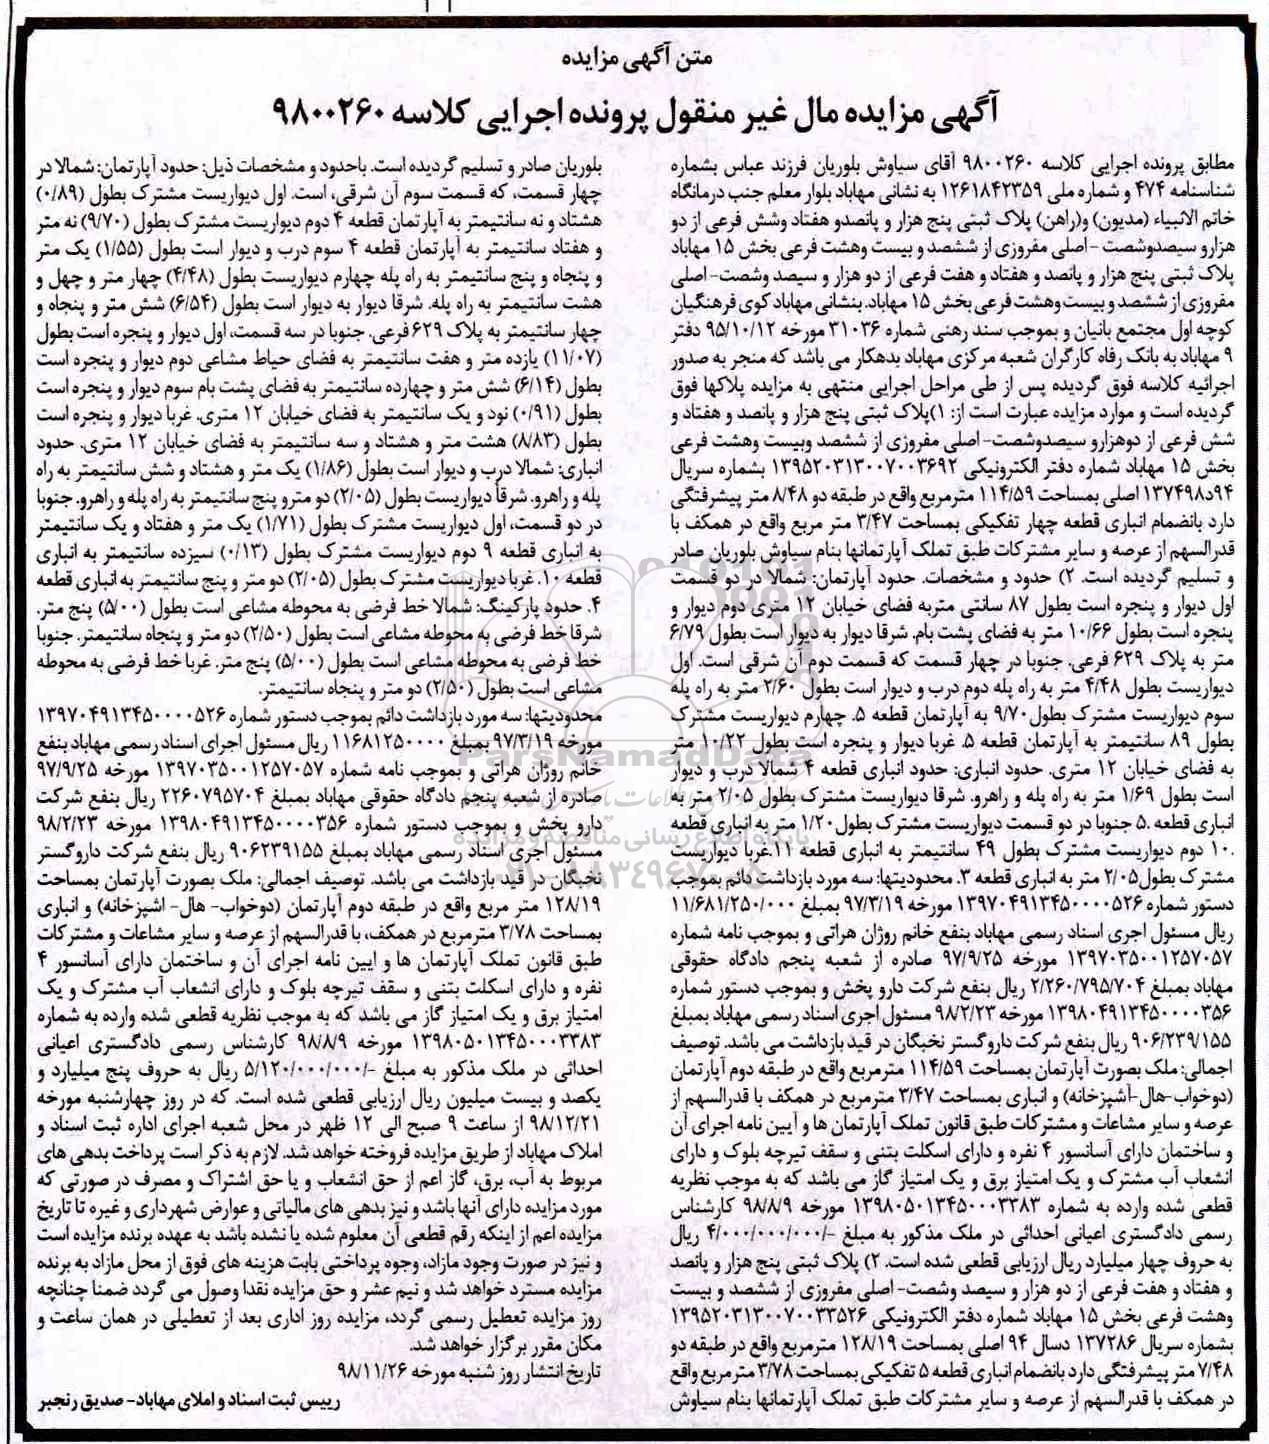 متن آگهی مزایده
آگهی مزایده مال غیر منقول پرونده اجرایی کلاسه ۹۸۰۰۲۶۰
مطابق پرونده اجرایی کلاسه ۹۸۰۰۲۶۰ آقای سیاوش بلوریان فرزند عباس بشماره
شناسنامه ۴۷۴ و شماره ملی ۱۲۶۱۸۴۲۳۵۹ به نشانی مهاباد بلوار معلم جنب درمانگاه
خاتم الانبیاء (مدیون) و(راهن) پلاک ثبتی پنج هزار و پانصدو هفتاد وشش فرعی از دو
هزارو سیصدوشصت -اصلی مفروزی از ششصد و بیست وهشت فرعی بخش ۱۵ مهاباد
پلاک ثبتی پنج هزار و پانصد و هفتاد و هفت فرعی از دو هزار و سیصد وشصت- اصلی
مفروزی از ششصد و بیست وهشت فرعی بخش ۱۵ مهاباد. بنشانی مهاباد کوی فرهنگیان
کوچه اول مجتمع بانیان و بموجب سند رهنی شماره ۳۱۰۳۶ مورخه ۹۵/۱۰/۱۲ دفتر
۹ مهاباد به بانک رفاه کارگران شعبه مرکزی مهاباد بدهکار می باشد که منجر به صدور
اجرائیه کلاسه فوق گردیده پس از طی مراحل اجرایی منتهی به مزایده پلاکها فوق
گردیده است و موارد مزایده عبارت است از: ۱)پلاک ثبتی پنج هزار و پانصد و هفتاد و
شش فرعی از دوهزارو سیصدوشصت- اصلی مفروزی از ششصد وبیست وهشت فرعی
بخش ۱۵ مهاباد شماره دفتر الکترونیکی ۱۳۹۵۲۰۳۱۳۰۰۷۰۰۳۶۹۲ بشماره سریال
۱۳۷۴۹۸د۹۴ اصلی بمساحت ۱۱۴/۵۹ مترمربع واقع در طبقه دو ۸/۴۸ متر پیشرفتگی
دارد بانضمام انباری قطعه چهار تفکیکی بمساحت ۳/۴۷ متر مربع واقع در همکف با
قدرالسهم از عرصه و سایر مشترکات طبق تملک آپارتمانها بنام سیاوش بلوریان صادر
و تسلیم گردیده است. ۲) حدود و مشخصات. حدود آپارتمان: شمالا در دو قسمت
اول دیوار و پنجره است بطول ۸۷ سانتی متربه فضای خیابان ۱۲ متری دوم دیوار و
پنجره است بطول ۱۰/۶۶ متر به فضای پشت بام. شرقا دیوار به دیوار است بطول ۶/۷۹
متر به پلاک ۶۲۹ فرعی. جنوبا در چهار قسمت که قسمت دوم آن شرقی است. اول
دیواریست بطول ۴/۴۸ متر به راه پله دوم درب و دیوار است بطول ۲/۶۰ متر به راه پله
سوم دیواریست مشترک بطول ۹/۷۰ به آپارتمان قطعه ۵. چهارم دیواریست مشترک
بطول ۸۹ سانتیمتر به آپارتمان قطعه ۵. غربا دیوار و پنجره است بطول ۱۰/۲۲ متر
به فضای خیابان ۱۲ متری. حدود انباری: حدود انباری قطعه ۴ شمالا درب و دیوار
است بطول ۱/۶۹ متر به راه پله و راهرو. شرقا دیواریست مشترک بطول ۲/۰۵ متر به
انباری قطعه ۵. جنوبا در دو قسمت دیواریست مشترک بطول۱/۲۰ متر به انباری قطعه
۱۰. دوم دیواریست مشترک بطول ۴۹ سانتیمتر به انباری قطعه ۱۱.غربا دیواریست
مشترک بطول۲/۰۵ متر به انباری قطعه ۳. محدودیتها: سه مورد بازداشت دائم بموجب
دستور شماره ۱۳۹۷۰۴۹۱۳۴۵۰۰۰۰۵۲۶ مورخه ۹۷/۳/۱۹ بمبلغ ۱۱/۶۸۱/۲۵۰/۰۰۰
ریال مسئول اجری اسناد رسمی مهاباد بنفع خانم روژان هراتی و بموجب نامه شماره
۱۳۹۷۰۳۵۰۰۱۲۵۷۰۵۷ مورخه ۹۷/۹/۲۵ صادره از شعبه پنجم دادگاه حقوقی
مهاباد بمبلغ ۲/۲۶۰/۷۹۵/۷۰۴ ریال بنفع شرکت دارو پخش و بموجب دستور شماره
۱۳۹۸۰۴۹۱۳۴۵۰۰۰۰۳۵۶ مورخه ۹۸/۲/۲۳ مسئول اجری اسناد رسمی مهاباد بمبلغ
۹۰۶/۲۳۹/۱۵۵ ریال بنفع شرکت داروگستر نخبگان در قید بازداشت می باشد. توصیف
اجمالی: ملک بصورت آپارتمان بمساحت ۱۱۴/۵۹ مترمربع واقع در طبقه دوم آپارتمان
(دوخواب-هال-آشپزخانه) و انباری بمساحت ۳/۴۷ مترمربع در همکف با قدرالسهم از
عرصه و سایر مشاعات و مشترکات طبق قانون تملک آپارتمان ها و آیین نامه اجرای آن
و ساختمان دارای آسانسور ۴ نفره و دارای اسکلت بتنی و سقف تیرچه بلوک و دارای
انشعاب آب مشترک و یک امتیاز برق و یک امتیاز گاز می باشد که به موجب نظریه
قطعی شده وارده به شماره ۱۳۹۸۰۵۰۱۳۴۵۰۰۰۳۳۸۳ مورخه ۹۸/۸/۹ کارشناس
رسمی دادگستری اعیانی احداثی در ملک مذکور به مبلغ -/۴/۰۰۰/۰۰۰/۰۰۰ ریال
به حروف چهار میلیارد ریال ارزیابی قطعی شده است. ۲) پلاک ثبتی پنج هزار و پانصد
و هفتاد و هفت فرعی از دو هزار و سیصد وشصت- اصلی مفروزی از ششصد و بیست
وهشت فرعی بخش ۱۵ مهاباد شماره دفتر الکترونیکی ۱۳۹۵۲۰۳۱۳۰۰۷۰۰۳۳۵۲۶
بشماره سریال ۱۳۷۲۸۶ دسال ۹۴ اصلی بمساحت ۱۲۸/۱۹ مترمربع واقع در طبقه دو
۷/۴۸ متر پیشرفتگی دارد بانضمام انباری قطعه ۵ تفکیکی بمساحت ۳/۷۸ مترمربع واقع
در همکف با قدرالسهم از عرصه و سایر مشترکات طبق تملک آپارتمانها بنام سیاوش
بلوریان صادر و تسلیم گردیده است. باحدود و مشخصات ذیل: حدود آپارتمان: شمالا در
چهار قسمت، که قسمت سوم آن شرقی، است. اول دیواریست مشترک بطول (۰/۸۹)
هشتاد و نه سانتیمتر به آپارتمان قطعه ۴ دوم دیواریست مشترک بطول (۹/۷۰) نه متر
و هفتاد سانتیمتر به آپارتمان قطعه ۴ سوم درب و دیوار است بطول (۱/۵۵) یک متر
و پنجاه و پنج سانتیمتر به راه پله چهارم دیواریست بطول (۴/۴۸) چهار متر و چهل و
هشت سانتیمتر به راه پله. شرقا دیوار به دیوار است بطول (۶/۵۴) شش متر و پنجاه و
چهار سانتیمتر به پلاک ۶۲۹ فرعی. جنوبا در سه قسمت، اول دیوار و پنجره است بطول
(۱۱/۰۷) یازده متر و هفت سانتیمتر به فضای حیاط مشاعی دوم دیوار و پنجره است
بطول (۶/۱۴) شش متر و چهارده سانتیمتر به فضای پشت بام سوم دیوار و پنجره است
بطول (۰/۹۱) نود و یک سانتیمتر به فضای خیابان ۱۲ متری. غربا دیوار و پنجره است
بطول (۸/۸۳) هشت متر و هشتاد و سه سانتیمتر به فضای خیابان ۱۲ متری. حدود
انباری: شمالا درب و دیوار است بطول (۱/۸۶) یک متر و هشتاد و شش سانتیمتر به راه
پله و راهرو. شرقاً دیواریست بطول (۲/۰۵) دو مترو پنج سانتیمتر به راه پله و راهرو. جنوبا
در دو قسمت، اول دیواریست مشترک بطول (۱/۷۱) یک متر و هفتاد و یک سانتیمتر
به انباری قطعه ۹ دوم دیواریست مشترک بطول (۰/۱۳) سیزده سانتیمتر به انباری
قطعه ۱۰. غربا دیواریست مشترک بطول (۲/۰۵) دو متر و پنج سانتیمتر به انباری قطعه
۴. حدود پارکینگ: شمالا خط فرضی به محوطه مشاعی است بطول (۵/۰۰) پنج متر.
شرقا خط فرضی به محوطه مشاعی است بطول (۲/۵۰) دو متر و پنجاه سانتیمتر. جنوبا
خط فرضی به محوطه مشاعی است بطول (۵/۰۰) پنج متر. غربا خط فرضی به محوطه
مشاعی است بطول (۲/۵۰) دو متر و پنجاه سانتیمتر.
محدودیتها: سه مورد بازداشت دائم بموجب دستور شماره ۱۳۹۷۰۴۹۱۳۴۵۰۰۰۰۵۲۶
مورخه ۹۷/۳/۱۹ بمبلغ ۱۱۶۸۱۲۵۰۰۰۰ ریال مسئول اجرای اسناد رسمی مهاباد بنفع
خانم روژان هراتی و بموجب نامه شماره ۱۳۹۷۰۳۵۰۰۱۲۵۷۰۵۷ مورخه ۹۷/۹/۲۵
صادره از شعبه پنجم دادگاه حقوقی مهاباد بمبلغ ۲۲۶۰۷۹۵۷۰۴ ریال بنفع شرکت
دارو پخش و بموجب دستور شماره ۱۳۹۸۰۴۹۱۳۴۵۰۰۰۰۳۵۶ مورخه ۹۸/۲/۲۳
مسئول اجری اسناد رسمی مهاباد بمبلغ ۹۰۶۲۳۹۱۵۵ ریال بنفع شرکت داروگستر
نخبگان در قید بازداشت می باشد. توصیف اجمالی: ملک بصورت آپارتمان بمساحت
۱۲۸/۱۹ متر مربع واقع در طبقه دوم آپارتمان (دوخواب- هال- اشپزخانه) و انباری
بمساحت ۳/۷۸ مترمربع در همکف، با قدرالسهم از عرصه و سایر مشاعات و مشترکات
طبق قانون تملک آپارتمان ها و ایین نامه اجرای آن و ساختمان دارای آسانسور ۴
نفره و دارای اسکلت بتنی و سقف تیرچه بلوک و دارای انشعاب آب مشترک و یک
امتیاز برق و یک امتیاز گاز می باشد که به موجب نظریه قطعی شده وارده به شماره
۱۳۹۸۰۵۰۱۳۴۵۰۰۰۳۳۸۳ مورخه ۹۸/۸/۹ کارشناس رسمی دادگستری اعیانی
احداثی در ملک مذکور به مبلغ -/۵/۱۲۰/۰۰۰/۰۰۰ ریال به حروف پنج میلیارد و
یکصد و بیست میلیون ریال ارزیابی قطعی شده است. که در روز چهارشنبه مورخه
۹۸/۱۲/۲۱ از ساعت ۹ صبح الی ۱۲ ظهر در محل شعبه اجرای اداره ثبت اسناد و
املاک مهاباد از طریق مزایده فروخته خواهد شد. لازم به ذکر است پرداخت بدهی های
مربوط به آب، برق، گاز اعم از حق انشعاب و یا حق اشتراک و مصرف در صورتی که
مورد مزایده دارای آنها باشد و نیز بدهی های مالیاتی و عوارض شهرداری و غیره تا تاریخ
مزایده اعم از اینکه رقم قطعی آن معلوم شده یا نشده باشد به عهده برنده مزایده است
و نیز در صورت وجود مازاد، وجوه پرداختی بابت هزینه های فوق از محل مازاد به برنده
مزایده مسترد خواهد شد و نیم عشر و حق مزایده نقدا وصول می گردد ضمنا چنانچه
روز مزایده تعطیل رسمی گردد، مزایده روز اداری بعد از تعطیلی در همان ساعت و
مکان مقرر برگزار خواهد شد.
تاریخ انتشار روز شنبه مورخه ۹۸/۱۱/۲۶
رییس ثبت اسناد و املای مهاباد- صدیق رنجبر
ParsNamadData
پایگاه اطلاع رسانی مناقصه و مزایده